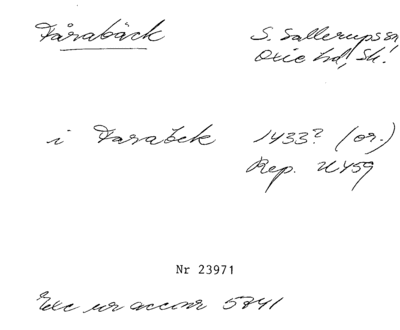 Fårabäck
S. Sallerups sn,
Oxie hd, Sk.
i Farabek 1433? (or.)
Rep. II 459
Nr 23971
Exc ur accnr 5741